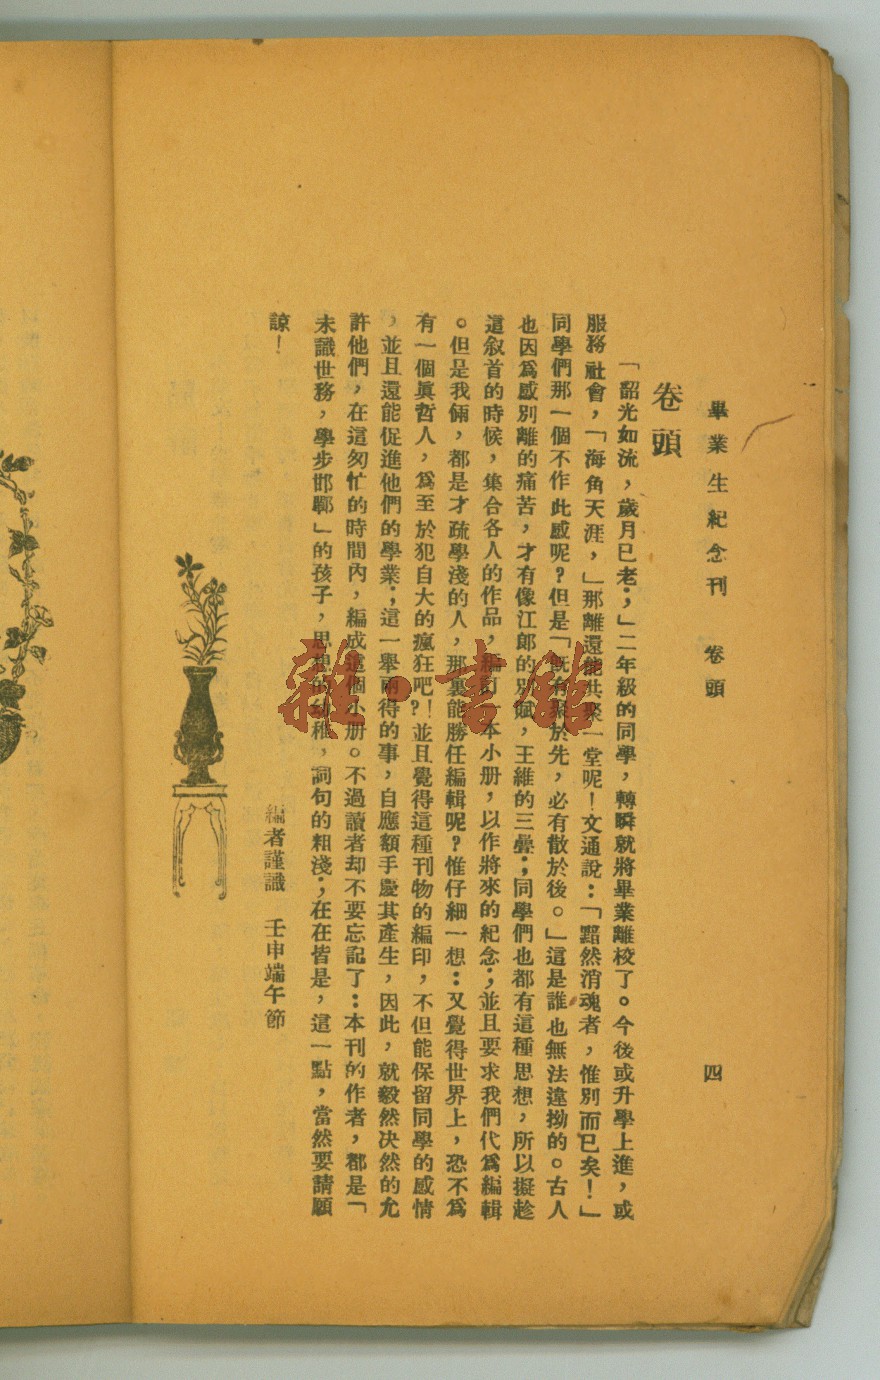 畢業生紀念刊 卷頭 四
卷頭
「韶光如流，歲月已老；」二年級的同學，轉瞬就將畢業離校了。今後或升學上進，或
服務社會，「海角天涯，」那離還能共聚一堂呢！文通說：「黯然消魂者，惟別而已矣！」
同學們那一個不作此感呢？但是「既有聚於先，必有散於後。」這是誰也無法違拗的。古人
也因爲感別離的痛苦，才有像江郎的別賦，王維的三疊；同學們也都有這種思想，所以擬趁
這叙首的時候，集合各人的作品，編訂一本小册，以作將來的紀念；並且要求我們代爲編輯
。但是我倆，都是才疏學淺的人，那裏能勝任編輯呢？惟仔細一想：又覺得世界上，恐不爲
有一個眞哲人，爲至於犯自大的瘋狂吧！並且覺得這種刊物的編印，不但能保留同學的感情
，並且還能促進他們的學業；這一舉兩得的事，自應額手慶其產生，因此，就毅然决然的允
許他們，在這匆忙的時間內，編成這個小册。不過讀者却不要忘記了：本刊的作者，都是「
未識世務，學步邯鄲」的孩子，思想的幼稚，詞句的粗淺；在在皆是，這一點，當然要請願
諒！
編者謹識 壬申端午節
雜·書館